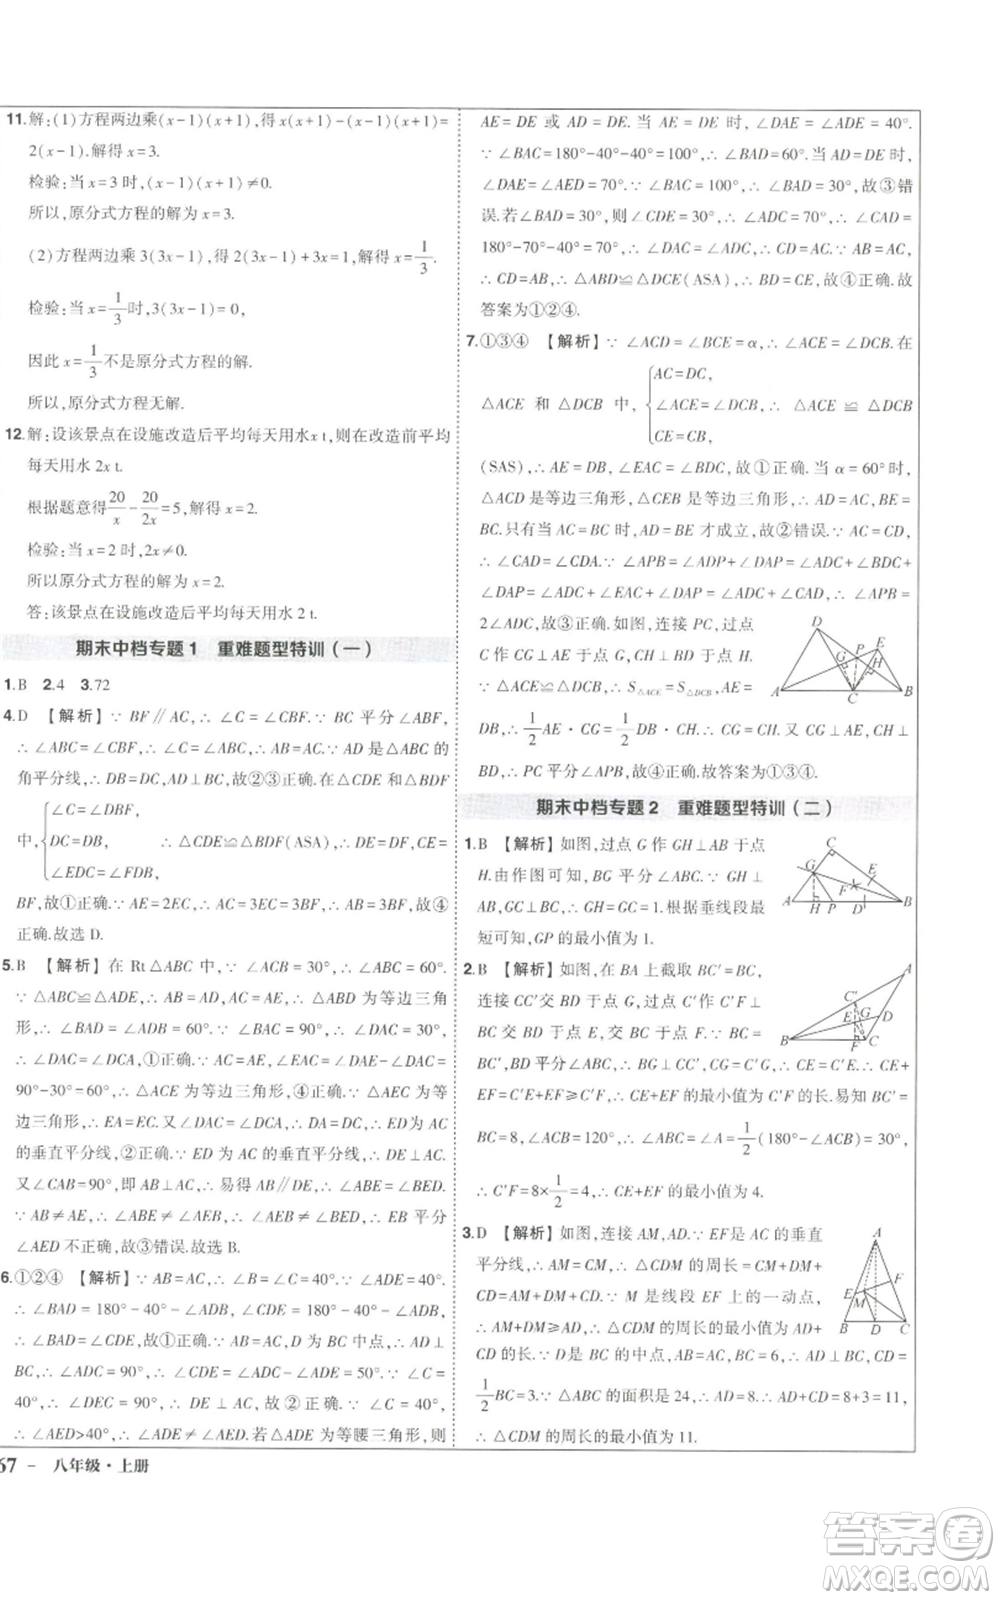 11.解:(1)方程两边乘(x-1)(x+1),得x(x+1)-(x-1)(x+1)=
2(x-1).解得x=3.
检验:当x=3时,(x-1)(x+1)≠0.
所以,原分式方程的解为x=3.
(2)方程两边乘3(3x-1),得2(3x-1)+3x=1.解得x=1/3.
检验:当x=1/3时,3(3x-1)=0,
因此x=1/3不是原分式方程的解.
所以,原分式方程无解.
12.解:设该景点在设施改造后平均每天用水x t,则在改造前平均
每天用水2x t.
根据题意得20/x-20/2x=5,解得x=2.
检验:当x=2时,2x≠0.
所以原分式方程的解为x=2.
答:该景点在设施改造后平均每天用水2 t.
期末中档专题1 重难题型特训(一)
1.B 2.4 3.72
4.D 【解析】∵BF∥AC,∴∠C=∠CBF.∵BC平分∠ABF,
∴∠ABC=∠CBF,∴∠C=∠ABC,∴AB=AC.∵AD是△ABC的
角平分线,∴DB=DC,AD⊥BC,故②③正确.在△CDE和△BDF
中,{∠C=∠DBF, DC=DB, ∠EDC=∠FDB, ∴△CDE≌△BDF(ASA),∴DE=DF,CE=
BF,故①正确.∵AE=2EC,∴AC=3EC=3BF,∴AC=3BF,故④
正确.故选D.
5.B 【解析】在Rt△ABC中,∵∠ACB=30°,∴∠ABC=60°.
∵△ABC≌△ADE,∴AB=AD,∴△ABD为等边三角形,
∴∠BAD=∠ADB=60°.∵∠BAC=90°,∴∠DAC=30°,
∴∠DAC=∠DCA,①正确.∵AC=AE,∠EAC=∠DAE-∠DAC=
90°-30°=60°,∴△ACE为等边三角形,④正确.∵△AEC为等边
三角形,∴EA=EC.又∠DAC=∠DCA,∴DA=DC,∴ED为AC
的垂直平分线,②正确.∵ED为AC的垂直平分线,∴DE⊥AC.
又∠CAB=90°,即AB⊥AC,∴易得AB∥DE,∴∠ABE=∠BED.
∵AB≠AE,∴∠ABE≠∠AEB,∴∠AEB≠∠BED,∴EB平分
∠AED不正确,故③错误.故选B.
6.①②④ 【解析】∵AB=AC,∴∠B=∠C=40°,
∴∠BAD=180°-40°-∠ADB,∠CDE=180°-40°-∠ADB,
∴∠BAD=∠CDE,故①正确.∵AB=AC,D为BC中点,
∴∠ADC=90°.∵∠ADE=40°,∴∠CDE=50°.∵∠C=40°,
∴∠DEC=90°,∴DE⊥AC,故②正确.∵∠C=40°,
∴∠AED>40°,∴∠ADE≠∠AED.若△ADE为等腰三角形,则
AE=DE或AD=DE.当AE=DE时,∠DAE=∠ADE=40°.
∵∠BAC=180°-40°-40°=100°,∴∠BAD=60°.当AD=DE时,
∠DAE=∠AED=70°.∵∠BAC=100°,∴∠BAD=30°,故③错
误.若∠BAD=30°,则∠CDE=30°,∴∠ADC=70°,∠CAD=
180°-70°-40°=70°,∴∠DAC=∠ADC,∴CD=AC.∵AB=AC,
∴CD=AB,∴△ABD≌△DCE(ASA),∴BD=CE,故④正确.故
答案为①②④.
7.①③④ 【解析】∵∠ACD=∠BCE=α,∴∠ACE=∠DCB.在
△ACE和△DCB中,{AC=DC, ∠ACE=∠DCB, CE=CB, ∴△ACE≌△DCB
(SAS),∴AE=DB,∠EAC=∠BDC,故①正确.当α=60°时,
△ACD是等边三角形,△CEB是等边三角形,∴AD=AC,BE=
BC.只有当AC=BC时,AD=BE才成立,故②错误.∵AC=CD,
∴∠CAD=∠CDA.∵∠APB=∠ADP+∠DAP=∠ADC+∠BDC+
∠DAP=∠ADC+∠EAC+∠DAP,∴∠APB=∠ADC+∠DAC=
2∠ADC,故③正确.如图,连接PC,过点C
作CG⊥AE于点G,CH⊥BD于点H.
∵△ACE≌△DCB,∴S△ACE=S△DCB,AE=
DB,∴1/2AE·CG=1/2DB·CH.∴CG=CH.又CG⊥AE,CH⊥
BD,∴PC平分∠APB,故④正确.故答案为①③④.
期末中档专题2 重难题型特训(二)
1.B 【解析】如图,过点G作GH⊥AB于点
H.由作图可知,BG平分∠ABC.∵GH⊥BA,
GC⊥BC,∴GH=GC=1.根据垂线段最
短可知,GP的最小值为1.
2.B 【解析】如图,在BA上截取BC′=BC,
连接CC′交BD于点G,过点C′作C′F⊥BC
于点F,交BD于点E,连接CE.∵BC=
BC′,BD平分∠ABC,∴BD垂直平分CC′,∴CE=C′E,
∴CE+EF=C′E+EF≥C′F,∴CE+EF的最小值为C′F的长.∵AC=
BC=8,∠ACB=120°,∴∠ABC=∠A=1/2(180°-∠ACB)=30°,
∴C′F=8×1/2=4,∴CE+EF的最小值为4.
3.D 【解析】如图,连接AM,AD.∵EF是AC的垂直
平分线,∴AM=CM,∴△CDM的周长=CM+DM+
CD=AM+DM+CD.∵M是线段EF上一动点,
∴AM+DM≥AD,∴△CDM的周长的最小值为AD+
CD的长.∵D为BC的中点,AB=AC,BC=6,∴AD⊥BC,CD=
1/2BC=3.∵△ABC的面积是24,∴AD=8.∴AD+CD=8+3=11,
∴△CDM的周长的最小值为11.
67 - 八年级·上册
答案卷
MXQE.COM